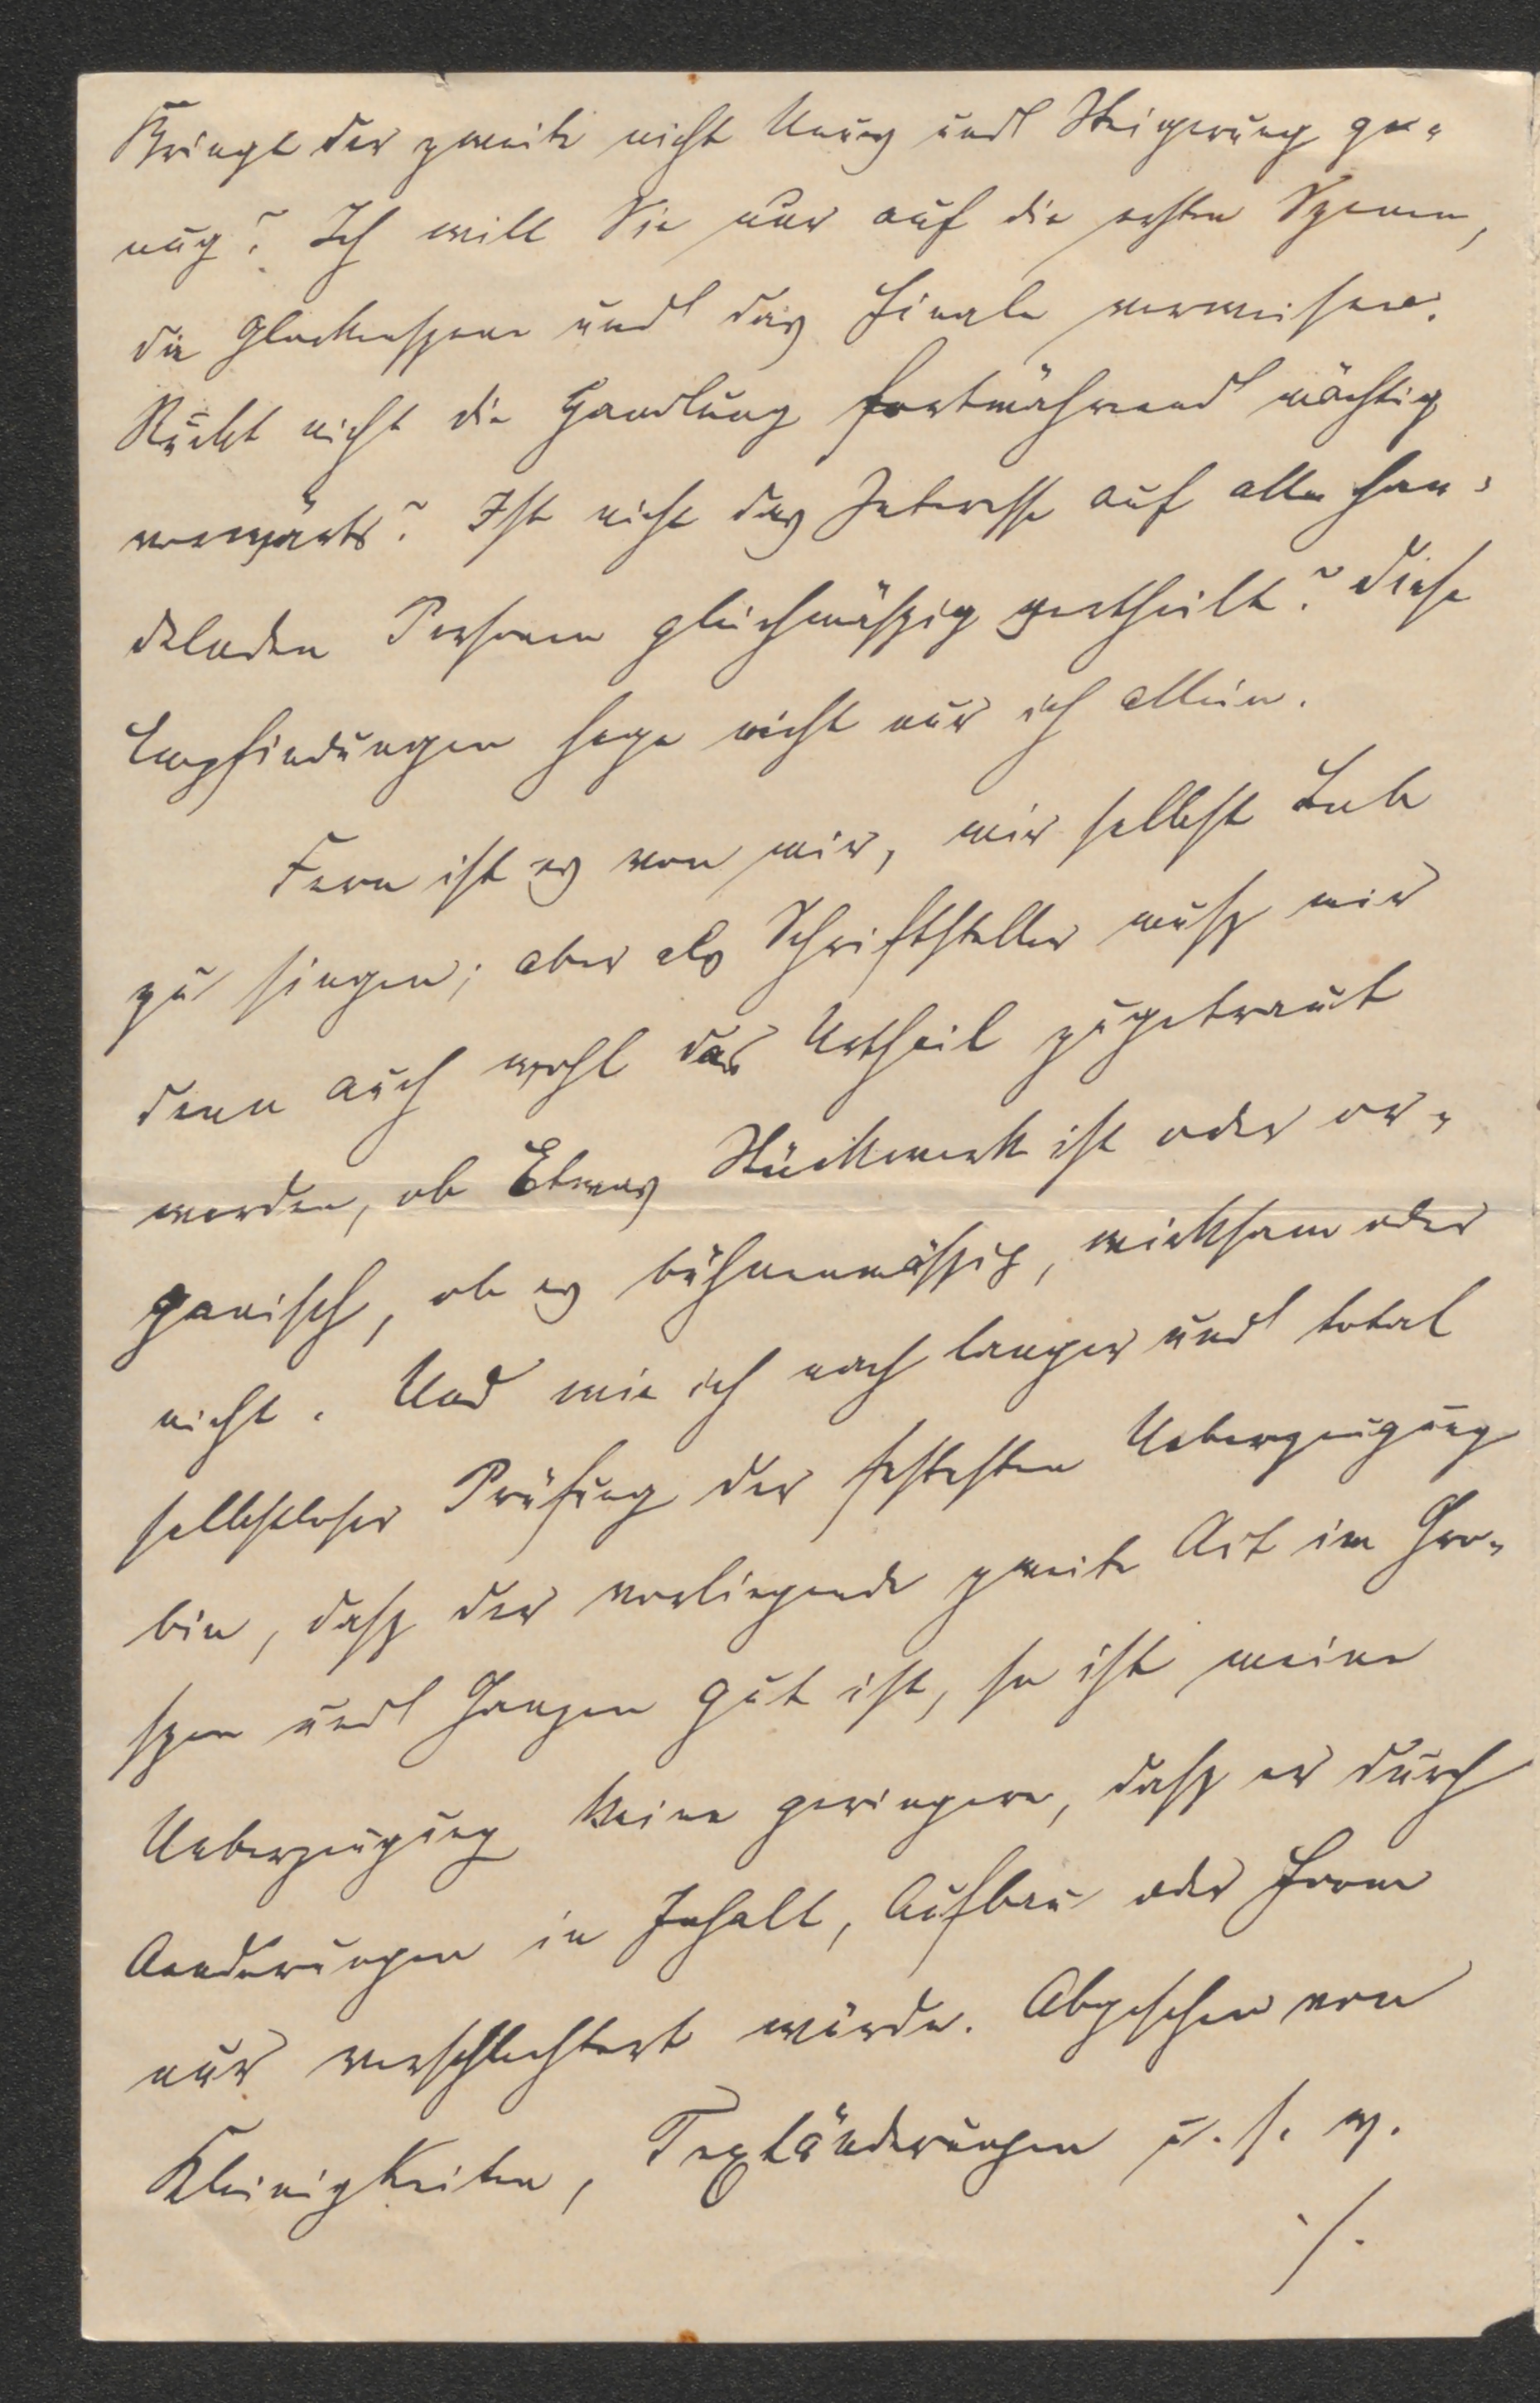 Bringt der zweite nicht Neues und Steigerung ge-
nug? Ich will Sie nur auf die ersten Szenen,
die Glockenszene und das Finale verweisen.
Rückt nicht die Handlung fortwährend mächtig
vorwärts? Ist nicht das Interesse auf alle han-
delnden Personen gleichmäßig vertheilt? Diese
Empfindungen hege nicht nur ich allein.
Fern ist es von mir, mir selbst Lob
zu singen; aber als Schriftsteller muß mir
denn auch wohl das Urtheil zugetraut
werden, ob Etwas Stückwerk ist oder or-
ganisch, ob es bühnenmäßig, wirksam oder
nicht. Und wie ich nach langer und total
selbstloser Prüfung der festesten Ueberzeugung
bin, daß der vorliegende zweite Act im Gro-
ßen und Ganzen gut ist, so ist meine
Ueberzeugung keine geringere, daß er durch
Aenderungen in Inhalt, Aufbau oder Form
nur verschlechtert würde. Abgesehen von
Kleinigkeiten, Textänderungen u. s. w.
./.